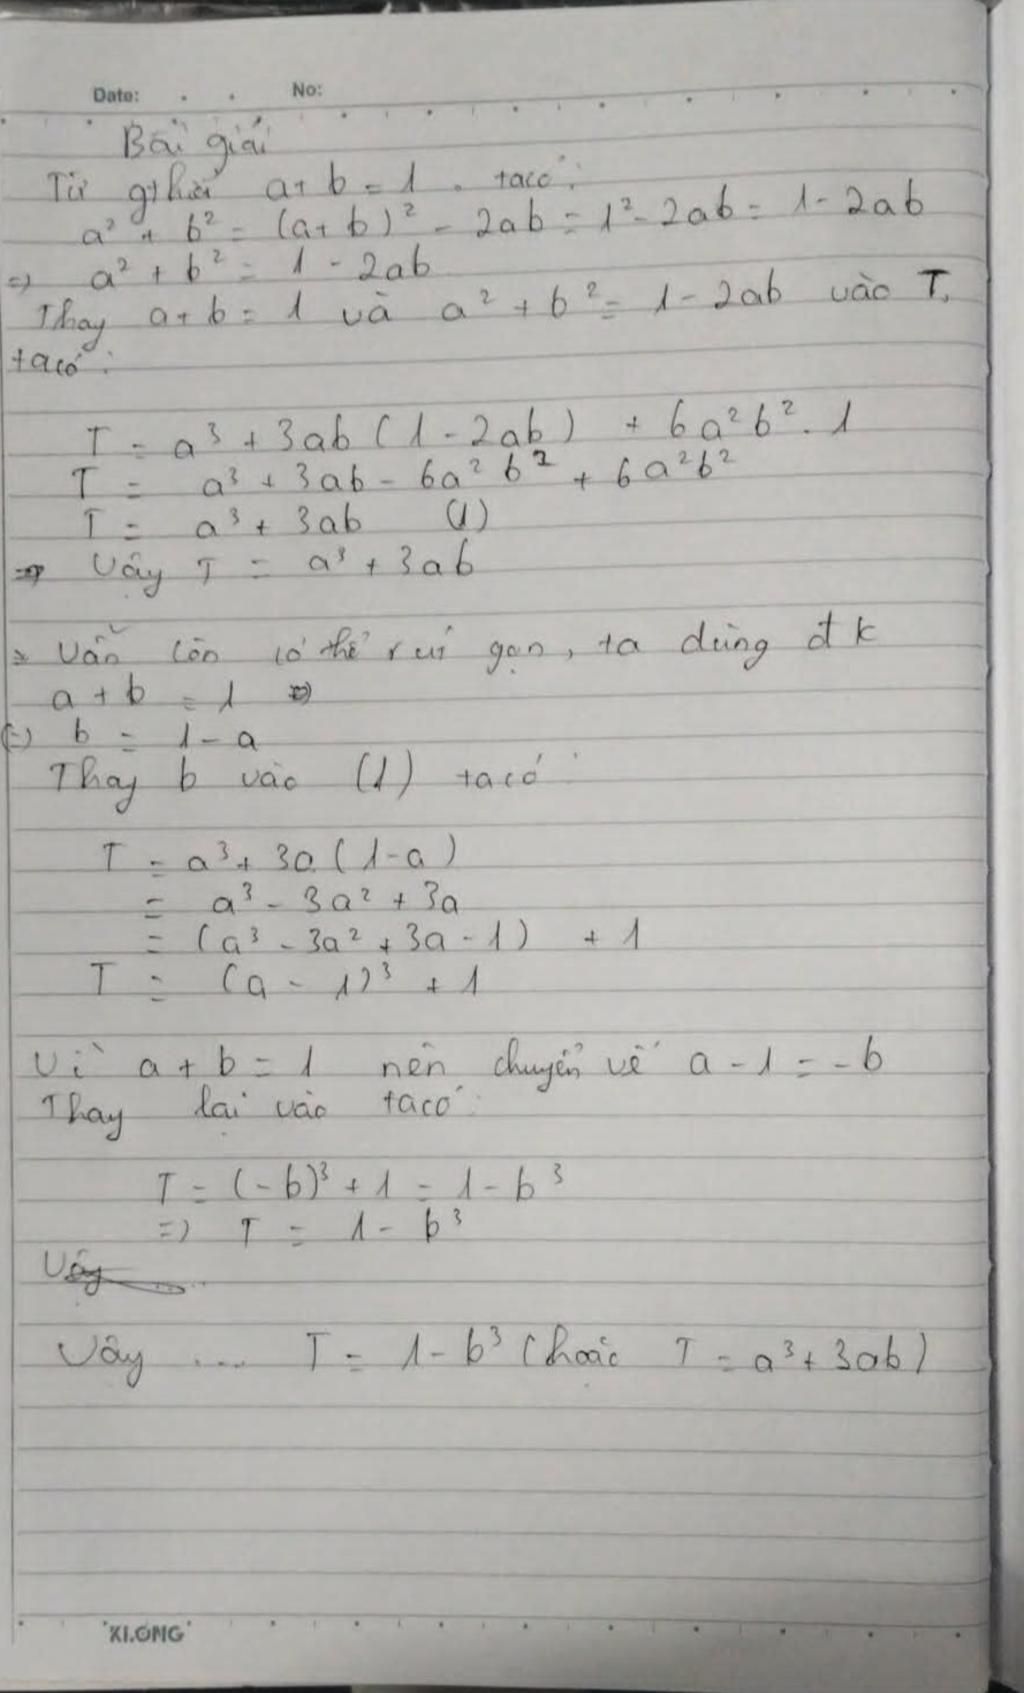 Date: . . No:
Bài giải
Từ gthiết a+b=1. ta có:
a² + b² = (a+b)² - 2ab = 1² - 2ab = 1 - 2ab
=> a² + b² = 1 - 2ab
Thay a+b = 1 và a² + b² = 1 - 2ab vào T,
ta có:
T = a³ + 3ab (1 - 2ab) + 6a²b². 1
T = a³ + 3ab - 6a²b² + 6a²b²
T = a³ + 3ab (1)
=> Vậy T = a³ + 3ab
Vẫn còn có thể rút gọn, ta dùng đk
a + b = 1
(=) b = 1 - a
Thay b vào (1) ta có:
T = a³ + 3a (1-a)
= a³ - 3a² + 3a
= (a³ - 3a² + 3a - 1) + 1
T = (a - 1)³ + 1
Vì a + b = 1 nên chuyển vế a - 1 = -b
Thay lại vào ta có:
T = (-b)³ + 1 = 1 - b³
=> T = 1 - b³
Vậy .... T = 1 - b³ (hoặc T = a³ + 3ab)
XLONG